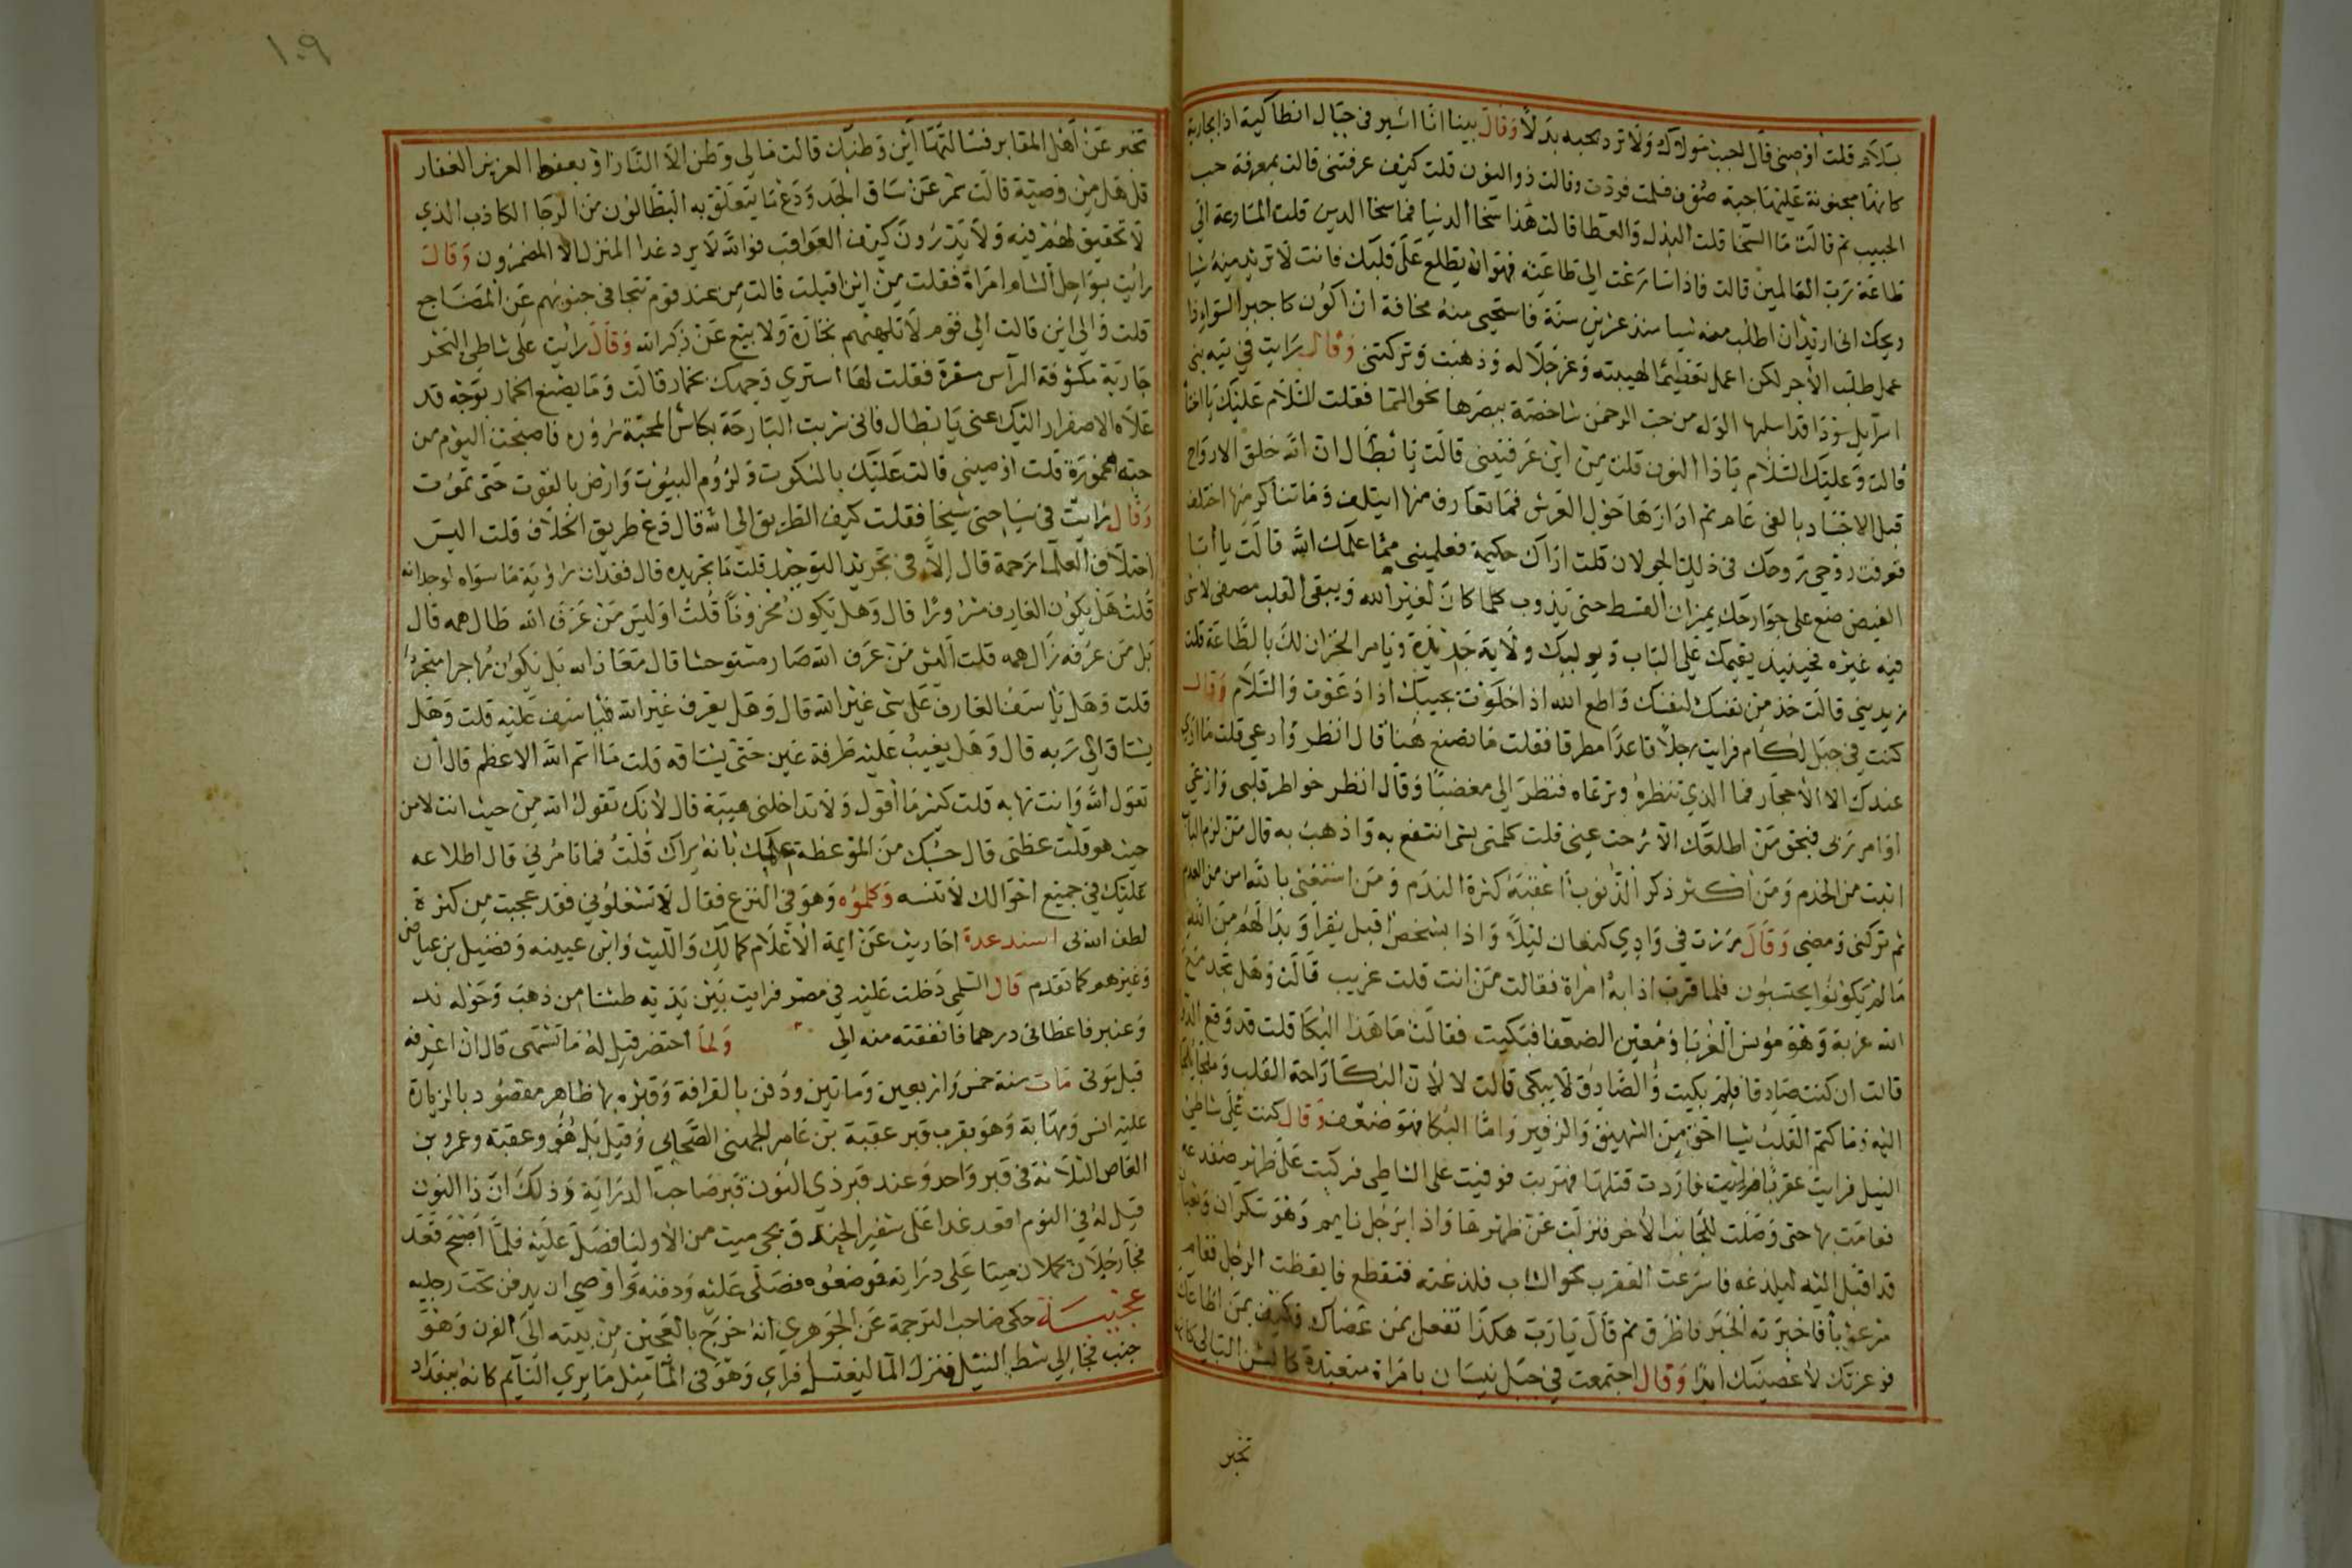 بسلام قلت اوصني قال لحبب مولاك ولا ترد بحبه بدلا وقال بينا انا اسير في جبال انطاكية اذا بجارية
كانها مجنونة عليها جبة صوف فسلمت فردت وقالت ذو النون قلت كيف عرفتني قالت بمعرفة حب
الحبيب ثم قالت ما السخا قلت البذل والعطا قالت هذا سخا الدنيا فما سخا الدين قلت المسارعة الي
طاعة رب العالمين قالت فاذا سارعت الي طاعته فهو ان يطلع علي قلبك فانت لا تريد منه شيا
ويحك اني اريد ان اطلب منه شيا منذ عشرين سنة فاستحيي منه مخافة ان اكون كاجير السوء اذا
عمل طلب الاجر لكن اعمل تعظيما لهيبته وعز جلاله وذهبت وتركتني وقال رايت في تيه بني
اسرايل سودا قد استلبها الوله من حب الرحمن شاخصة ببصرها نحو السما فقلت السلام عليك يا اختاه
قالت وعليك السلام يا ذا النون قلت من اين عرفتيني قالت يا بطال ان الله خلق الارواح
قبل الاجساد بالفي عام ثم ادارها حول العرش فما تعارف منها ايتلف وما تناكر منها اختلف
فعرفت روحي روحك في ذلك الجولان قلت اراك حكيمة فعلميني مما علمك الله قالت يا ابا
الفيض ضع علي جوارحك ميزان القسط حتي يذوب كلما كان لغير الله ويبقي القلب مصفي لاشي
فيه غيره فحينيذ يقيمك علي الباب ويوليك ولاية جديدة ويامر الخزان لك بالطاعة قلت
زيديني قالت خذ من نفسك لنفسك واطع الله اذا خلوت يجيبك اذا دعوت والسلام وقال
كنت في جبل لكام فرايت رجلا قاعدا مطرقا فقلت ما تصنع هنا قال انظر وارعي قلت ما اري
عندك الا الاحجار فما الذي تنظره وترعاه فنظر الي مغضبا وقال انظر خواطر قلبي وارعي
اوامر ربي فبحق من اطلعك الا رحت عني قلت كلمني بشي انتفع به واذهب به قال من لزم الباب
اثبت من الخدم ومن اكثر ذكر الذنوب اعقبه كثرة الندم ومن استغني بالله امن من العدم
ثم تركني ومضي وقال مررت في وادي كنعان ليلا واذا بشخص اقبل يقرا وبدا لهم من الله
ما لم يكونوا يحتسبون فلما قرب اذا به امراة فقالت من انت قلت غريب قالت وهل تجد مع
الله غربة وهو مونس الغربا ومعين الضعفا فبكيت فقالت ما هذا البكا قلت قد وقع الدوا
قالت ان كنت صادقا فلم بكيت والصادق لا يبكي قالت لا لان البكا راحة القلب وملجا يلجا
اليه وما كتم القلب شيا احق من الشهيق والزفير واما البكا فهو ضعف وقال كنت علي شاطي
النيل فرايت عقربا فاردت قتلها فهربت فوقفت علي الشاطي فركبت علي ظهر ضفدعة
فعامت بها حتي وصلت للجانب الاخر فنزلت عن ظهرها واذا برجل نايم وهو سكران وثعبان
قد اقبل اليه ليلدغه فاسرعت العقرب نحو الشاب فلدغته فتقطع فايقظت الرجل فقام
مرعوبا فاخبرته الخبر فاطرق ثم قال يا رب هكذا تفعل بمن عصاك فكيف بمن اطاعك
فوعزتك لا عصيتك ابدا وقال اجتمعت في جبل نيسان بامراة متعبدة كالشن البالي كانها
تخبر
١٠٩
تخبر عن اهل المقابر فسالتها اين وطنك قالت مالي وطن الا النار او يعفو العزيز الغفار
قل هل من وصية قالت شمر عن ساق الجد ودع ما يتعلق به البطالون من الرجا الكاذب الذي
لا تحقيق لهم فيه ولا يدرون كيف العواقب فوالله لا يرد غدا المنزل الا المضمرون وقال
رايت بسواحل الشام امراة فقلت من اين اقبلت قالت من عند قوم تتجافي جنوبهم عن المضاجع
قلت والي اين قالت الي قوم لا تلهيهم تجارة ولا بيع عن ذكر الله وقال رايت علي شاطي البحر
جارية مكشوفة الراس مسفرة فقلت لها استري وجهك بخمار قالت وما يصنع الخمار بوجه قد
علاه الاصفرار اليك عني يا بطال فاني شربت البارحة بكاس المحبة مسرورة فاصبحت اليوم من
حبه مخمورة قلت اوصيني قالت عليك بالسكوت ولزوم البيوت وارض بالقوت حتي تموت
وقال رايت في سياحتي شيخا فقلت كيف الطريق الي الله قال دع طريق الخلاف قلت اليس
اختلاف العلما رحمة قال الا في تجريد التوحيد قلت ما تجريده قال فقدان رؤية ما سواه لوجدانه
قلت هل يكون العارف مسرورا قال وهل يكون محزونا قلت اوليس من عرف الله طال همه قال
بل من عرفه زال همه قلت اليس من عرف الله صار مستوحشا قال معاذ الله بل يكون مهاجرا متجردا
قلت وهل ياسف العارف علي شي غير الله قال وهل يعرف غير الله فياسف عليه قلت وهل
يشتاق الي ربه قال وهل يغيب عليه طرفة عين حتي يشتاقه قلت ما اسم الله الاعظم قال ان
تقول الله وانت تهابه قلت كثيرا ما اقول ولا تداخلني هيبة قال لانك تقول الله من حيث انت لا من
حيث هو قلت عظني قال حسبك من الموعظة علمك بانه يراك قلت فما تامرني قال اطلاعه
عليك في جميع احوالك لا تنسه وكلموه وهو في النزع فقال لا تشغلوني فقد عجبت من كثرة
لطف الله بي اسند عدة احاديث عن ايمة الاعلام كمالك والليث وابن عيينه وفضيل بن عياض
وغيرهم كما تقدم قال السلمي دخلت عليه في مصر فرايت بين يديه طشتا من ذهب وحوله ند
وعنبر فاعطاني درهما فانفقته منه الي ولما احتضر قيل له ما تشتهي قال ان اعرفه
قبل موتي مات سنة خمس واربعين ومايتين ودفن بالقرافة وقبره بها ظاهر مقصود بالزيارة
عليه انس ومهابة وهو بقرب قبر عقبة بن عامر الجهني الصحابي وقيل بل هو وعقبة وعمرو بن
العاص الثلاثة في قبر واحد وعند قبر ذي النون قبر صاحب الدراية وذلك ان ذا النون
قيل له في النوم اقعد غدا علي شفير الخندق يجي ميت من الاوليا فصل عليه فلما اصبح قعد
فجا رجلان يحملان ميتا علي دراية فوضعوه فصلي عليه ودفنه واوصي ان يدفن تحت رجليه
عجيبة حكي صاحب الترجمة عن الجوهري انه خرج بالعجين من بيته الي الفرن وهو
جنب فجا الي شط النيل فنزل الما ليغتسل فراي وهو في الما مثل ما يري النايم كانه ببغداد